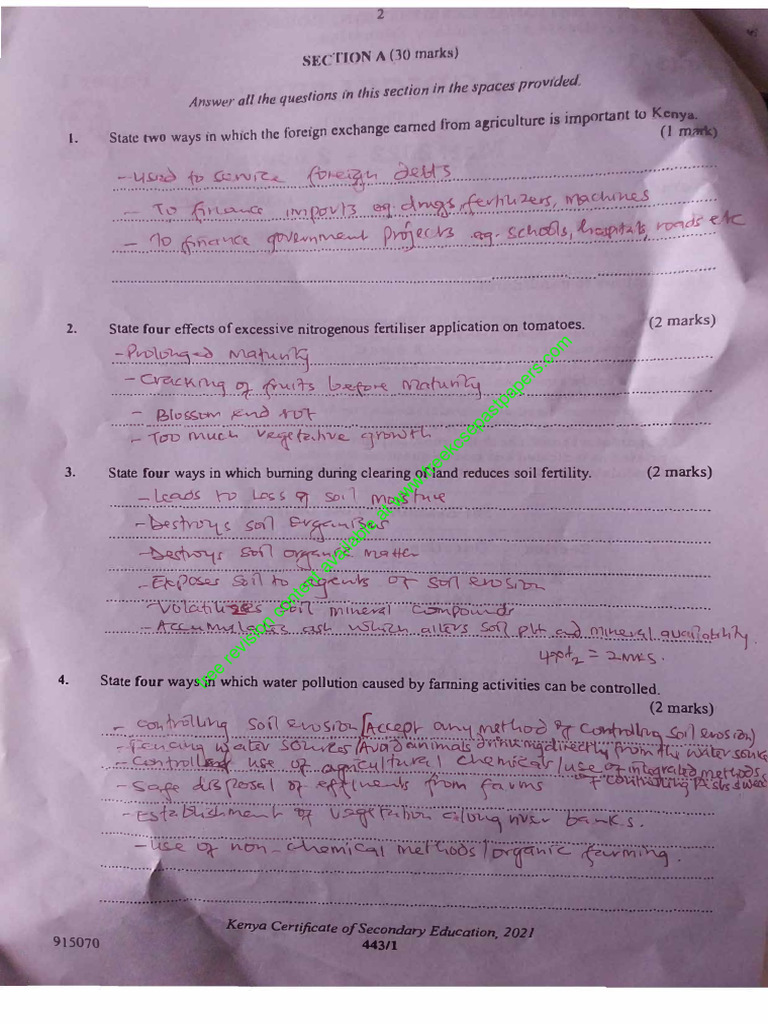 2
SECTION A (30 marks)
Answer all the questions in this section in the spaces provided.
1. State two ways in which the foreign exchange earned from agriculture is important to Kenya.
(1 mark)
- Used to service foreign debts
- To finance imports eg. drugs, fertilizers, machines
- To finance government projects eg. schools, hospitals, roads etc
2. State four effects of excessive nitrogenous fertiliser application on tomatoes. (2 marks)
- Prolonged maturity
- Cracking of fruits before maturity
- Blossom end rot
- Too much vegetative growth
3. State four ways in which burning during clearing of land reduces soil fertility. (2 marks)
- Leads to loss of soil moisture
- Destroys soil organisms
- Destroys soil organic matter
- Exposes soil to agents of soil erosion
Volatilizes soil mineral compounds
- Accumulates ash which alters soil pH and mineral availability.
= 2mks.
4. State four ways in which water pollution caused by farming activities can be controlled.
(2 marks)
- Controlling soil erosion/(Accept any method of controlling soil erosion)
- Fencing water sources/Avoid animals drinking directly from the water
- Controlled use of agricultural chemicals/use of integrated methods
of controlling pests
- Safe disposal of effluents from farms
- Establishment of vegetation along river banks.
- Use of non-chemical methods/organic farming.
Kenya Certificate of Secondary Education, 2021
915070
443/1